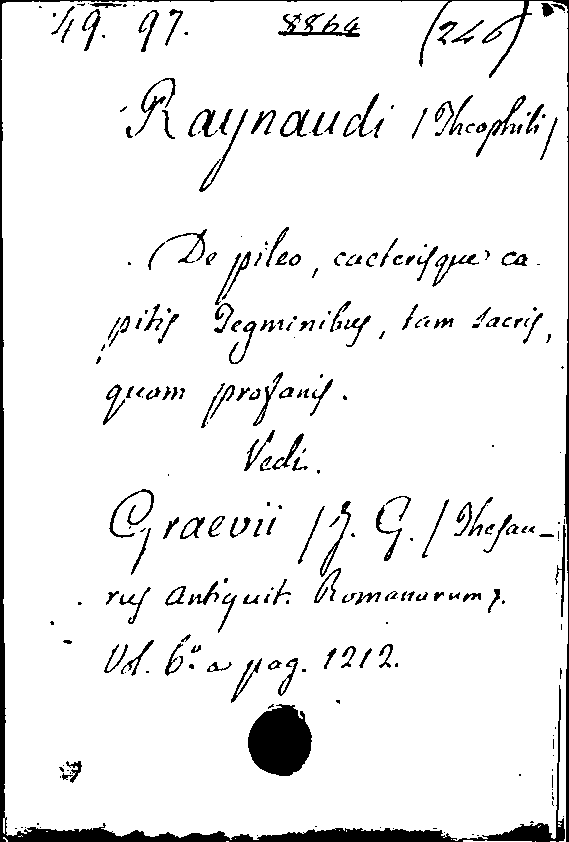 49. 97. 8864 (246)
Raynaudi /Theophili/
De pileo, caeterisque ca
pitis Tegminibus, tam sacris,
quam profanis.
Vedi.
Graevii /J. G./ Thesau-
rus Antiquit. Romanarum.
Vol. 6.º a pag. 1212.